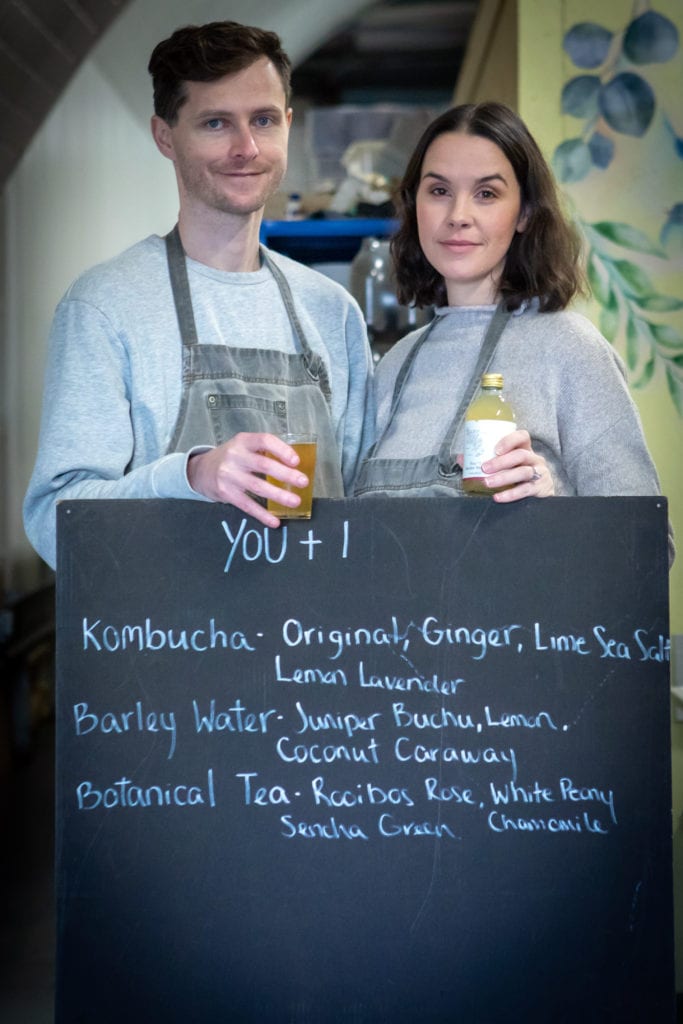 YOU + I
Kombucha - Original, Ginger, Lime Sea Salt
Lemon Lavender
Barley Water - Juniper Buchu, Lemon,
Coconut Caraway
Botanical Tea - Rooibos Rose, White Peony
Sencha Green Chamomile